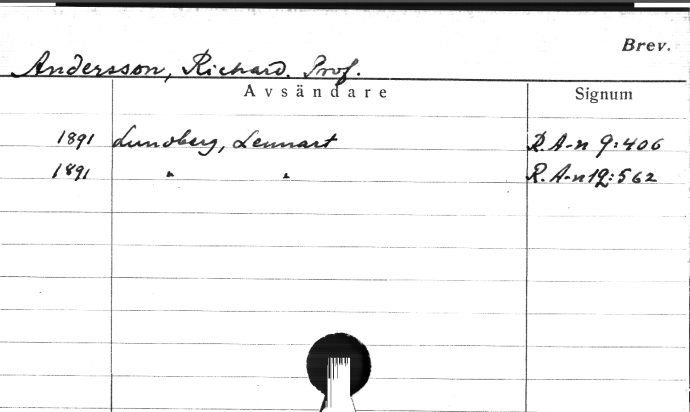 Brev.
Andersson, Richard. Prof.
Avsändare Signum
1891 Lundberg, Lennart R. A-n 9:406
1891 " " R. A-n 12:562